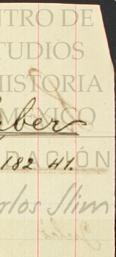 TRO DE
TUDIOS
HISTORIA
MÉXICO
aber
182 41.
DACIÓN
rlos Slim